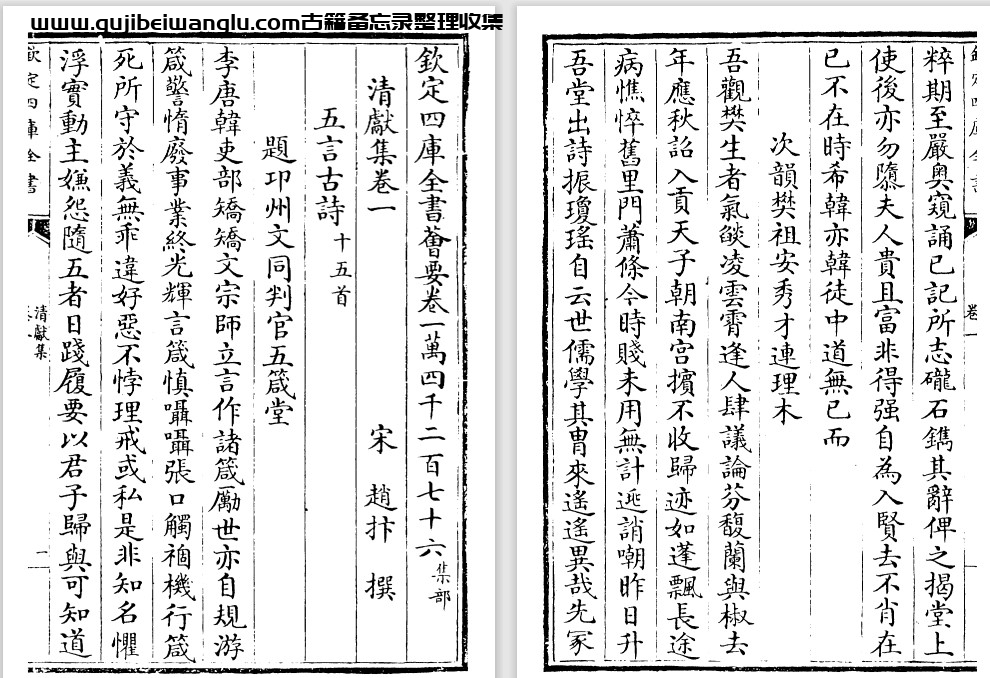 www.gujibeiwanglu.com古籍备忘录整理收集
欽定四庫全書薈要卷一萬四千二百七十六集部
清獻集卷一 宋 趙抃 撰
五言古詩十五首
題卭州文同判官五箴堂
李唐韓吏部矯矯文宗師立言作諸箴勵世亦自規游
箴警惰廢事業終光輝言箴慎囁囁張口觸禍機行箴
死所守於義無乖違好惡不悖理戒或私是非知名懼
浮實動主嫌怨隨五者日踐履要以君子歸與可知道
欽定四庫全書
清獻集
粹期至嚴奧窺誦已記所志礲石鐫其辭俾之揭堂上
使後亦勿隳夫人貴且富非得强自為入賢去不肖在
已不在時希韓亦韓徒中道無已而
次韻樊祖安秀才連理木
吾觀樊生者氣燄凌雲霄逢人肆議論芬馥蘭與椒去
年應秋詔入貢天子朝南宫擯不收歸迹如蓬飄長途
病憔悴舊里門蕭條今時賤未用無計逃誚嘲昨日升
吾堂出詩振瓊瑤自云世儒學其胄來遙遙異哉先冢
卷一